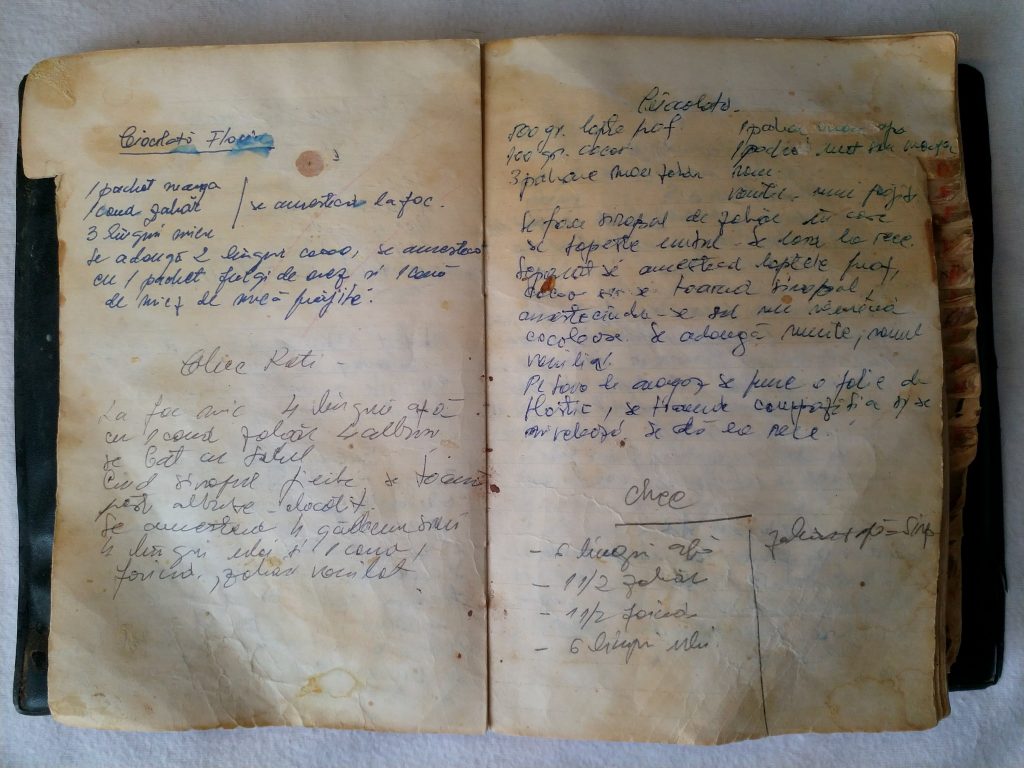 Ciocolată Florin
1 pachet
1 cană zahăr
se amestecă la foc.
3 linguri miere
Se adaugă 2 linguri cacao, se amestecă
cu 1 pachet fulgi de ovăz și 1 cană
de miez de nucă prăjită.
Chec Kati -
La foc mic 4 linguri apă
cu 1 cană zahăr 4 albușuri
se bat cu
Când siropul fierbe se toarnă
peste albușe
Se amestecă 4 gălbenușuri
4 linguri ulei și 1 cană
făină, zahăr vanilat
Ciocolată.
500 gr. lapte praf
100 gr. cacao
3 pahare mari zahăr
1 pahar mare apă
1 pachet unt sau
rom
vanilie, nuci prăjite
Se face siropul de zahăr în care
se topește untul - Se lasă la rece.
Separat se amestecă laptele praf,
cacao se toarnă siropul,
amestecându-se să nu rămână
cocoloașe. Se adaugă nucile, romul
vanilia.
Pe tava de aragaz se pune o folie de
plastic, se toarnă compoziția și se
nivelează se dă la rece.
Chec
- 6 linguri apă
- 1 1/2 zahăr
- 1 1/2 făină
- 6 linguri ulei
zahăr + apă = sirop